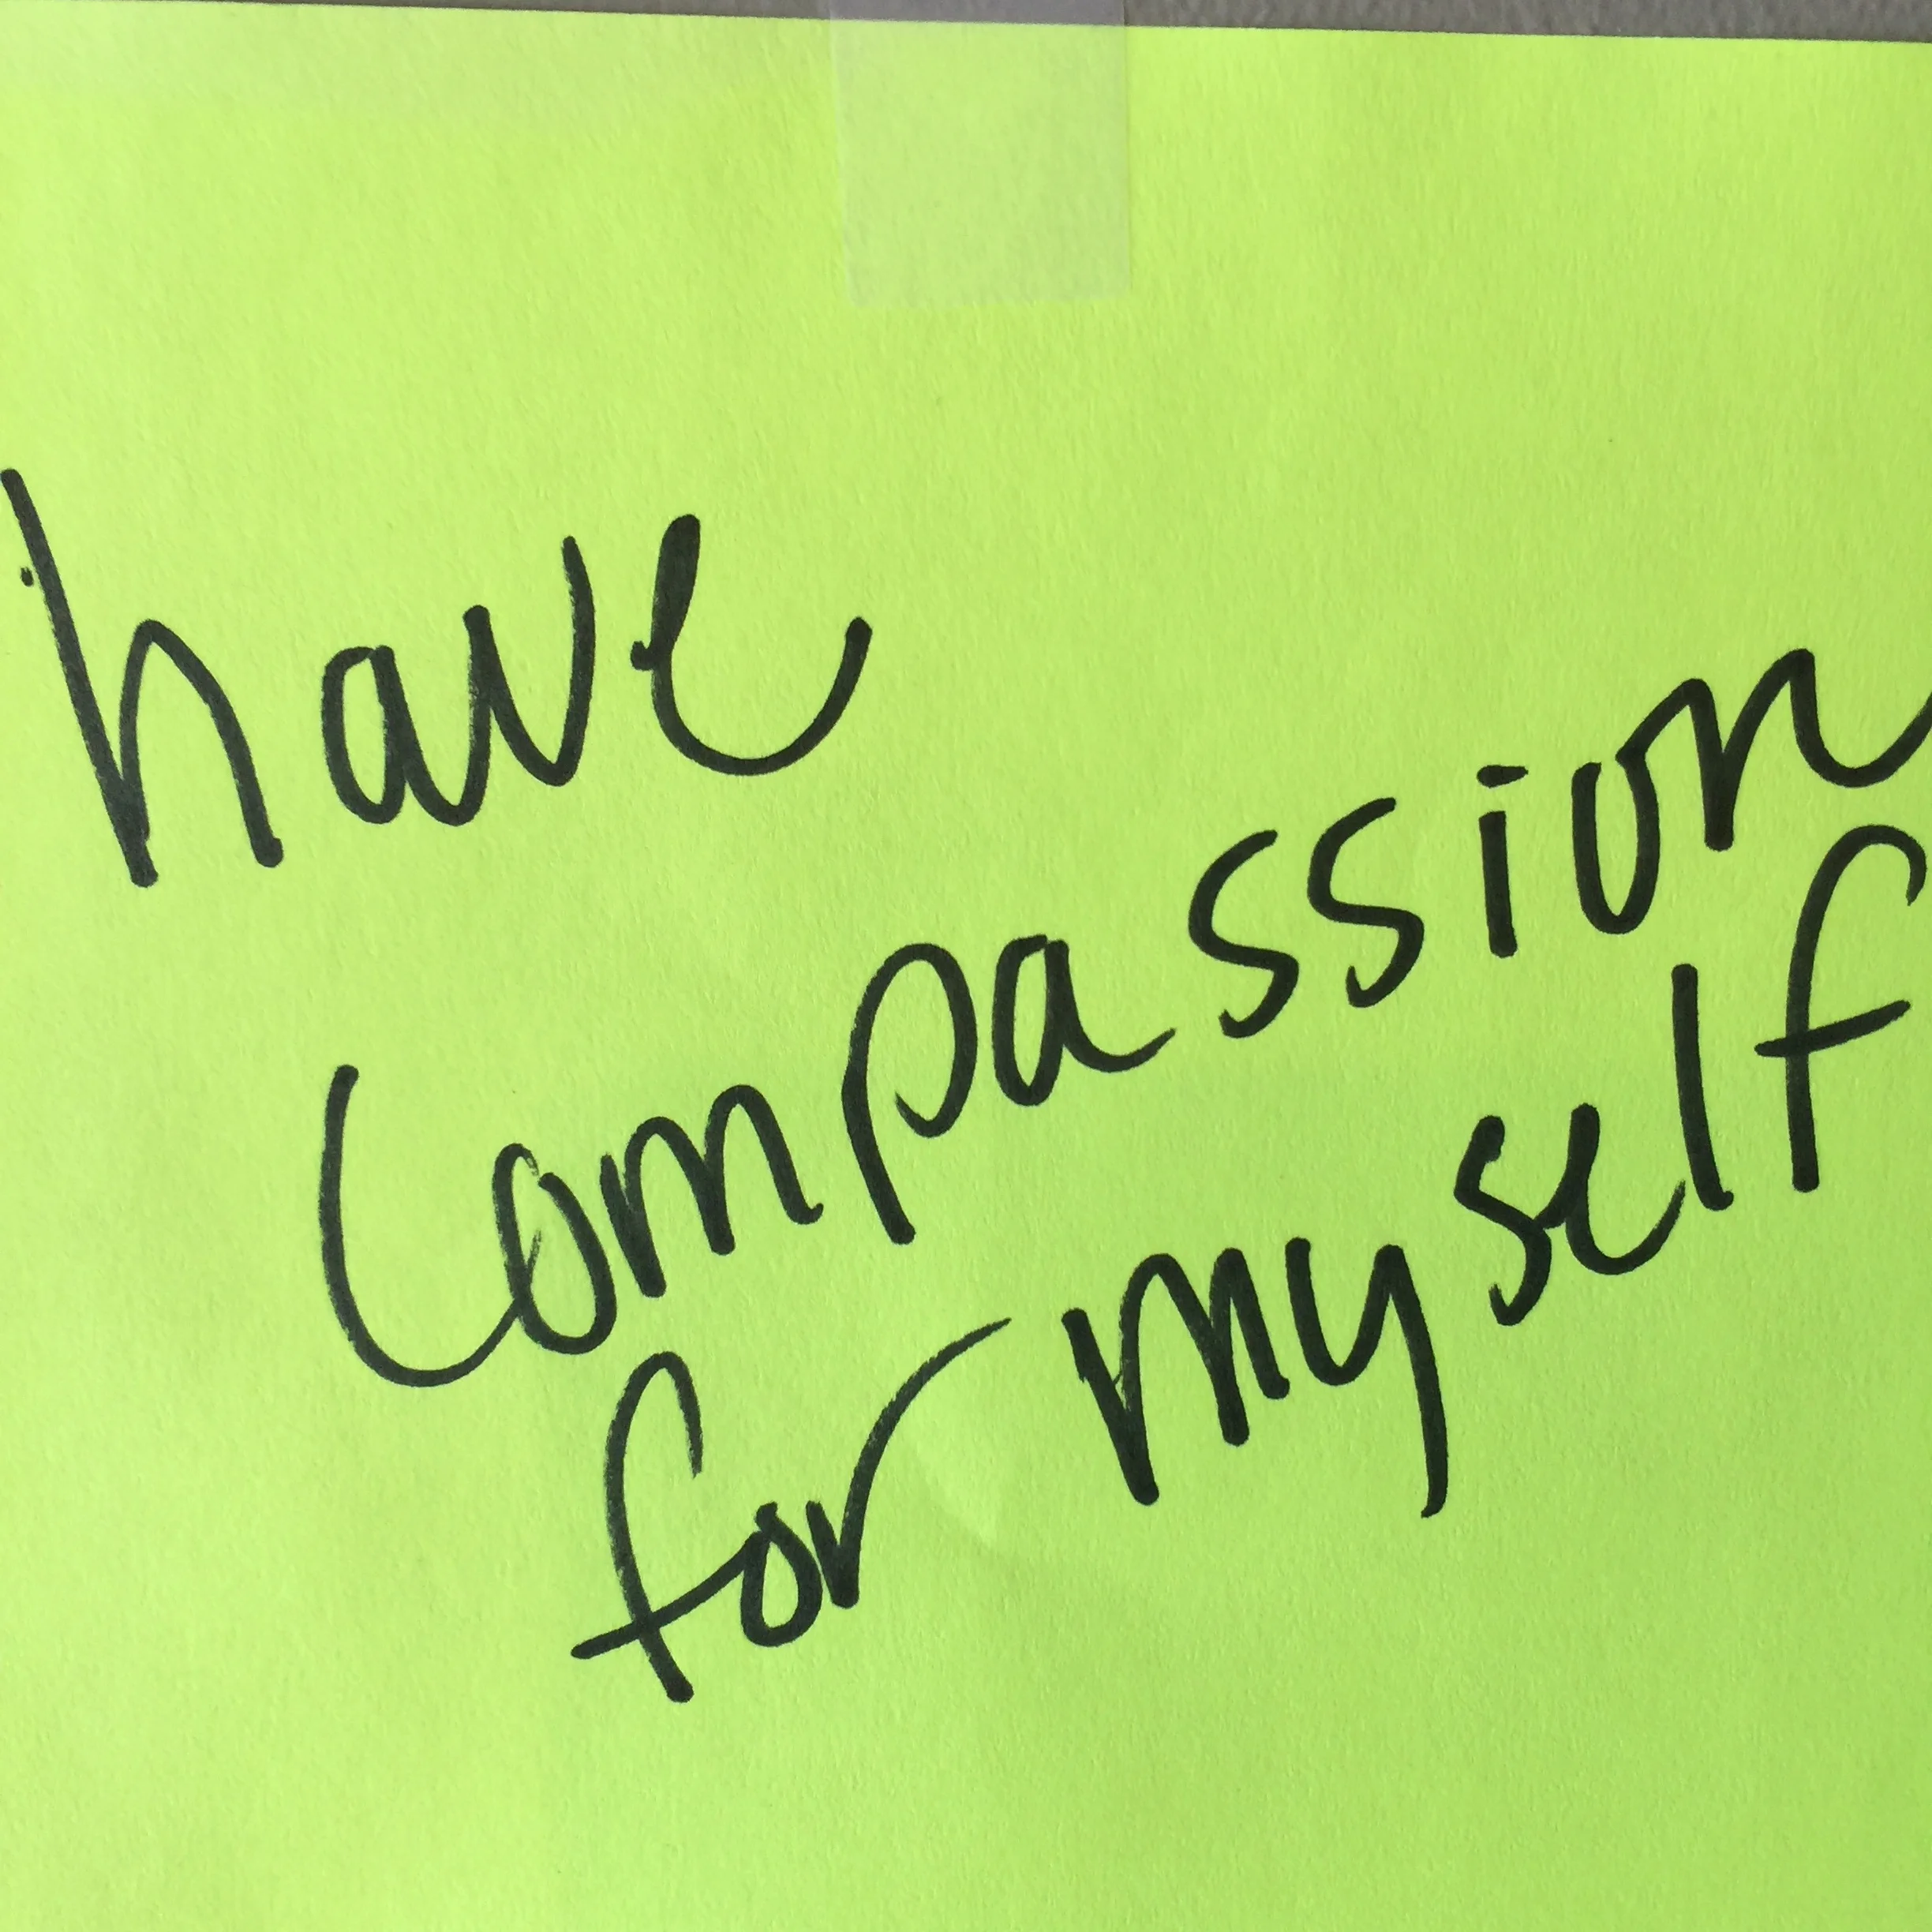 have
compassion
for myself